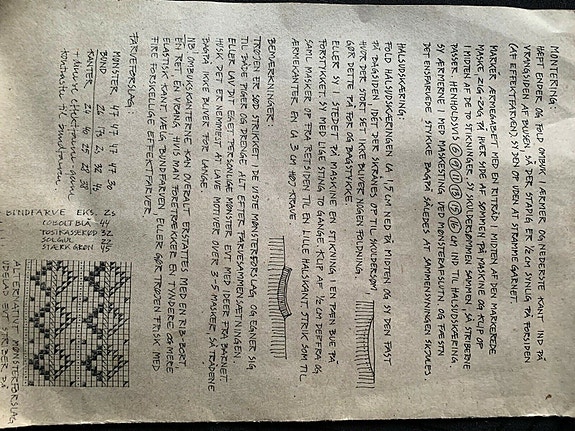 MONTERING:
HÆFT ENDER OG FOLD OMBUK I ÆRMER OG NEDERSTE KANT IND PÅ
VRANGSIDEN AF BLUSEN, SÅ DER STADIG ER ½ CM SYNLIG PÅ FORSIDEN
(AF EFFEKTFARVEN) SY DEN OP UDEN AT STRAMME GARNET.
MARKER ÆRMEGABET MED EN RITRÅD I MIDTEN AF DEN MARKEREDE
MASKE. ZIG-ZAG PÅ HVER SIDE AF SØMMEN PÅ MASKINE OG KLIP OP
I MIDTEN AF DE TO STIKNINGER. SY SKULDERSØMMEN SAMMEN, SÅ STRIBERNE
PASSER. HENHOLDSVIS CM IND TIL HALSUDSKÆRING.
SY ÆRMERNE I MED MASKESTING VED MØNSTERAFSLUTN. OG FÆSTN
DET ENSFARVEDE STYKKE BAGPÅ SÅLEDES AT SAMMENSYNINGEN SKJULES.
HALSUDSKÆRING:
FOLD HALSUDSKÆRINGEN CA 1,5 CM NED PÅ MIDTEN OG SY DEN FAST
PÅ BAGSIDEN, IDET DER SKRÅNES OP TIL SKULDERSØM,
HVOR DER SLET IKKE BLIVER NOGEN FOLDNING.
GØR DETTE PÅ FOR OG BAGSTYKKE.
ELLER SY I STEDET PÅ MASKINE EN STIKNING, I EN PÆN BUE PÅ
FORSTYKKET. SY MED LIGE STING TO GANGE. KLIP AF ½ CM DERFRA OG
SAML MASKER OP FRA RETSIDEN TIL EN LILLE HALSKANT STRIK SOM TIL
ÆRMEKANTEN EN CA 3 CM HØJ KRAVE.
BEMÆRKNINGER:
TRØJEN ER SØD STRIKKET I DE VISTE MØNSTERFORSLAG OG EGNER SIG
TIL BÅDE PIGER OG DRENGE ALT EFTER FARVESAMMENSÆTNINGEN
ELLER LAV DIT EGET PERSONLIGE MØNSTER EVT MED IDEER FRA BARNET
HUSK DET ER NEMMEST AT LAVE MOTIVER OVER 3-5 MASKER SÅ TRÅDENE
BAGPÅ IKKE BLIVER FOR LANGE.
NB! OMBUKSKANTERNE KAN OVERALT ERSTATTES MED EN RIB BORT
EN RET, EN VRANG, HVIS MAN FORETRÆKKER EN TYNDERE OG MERE
ELASTISK KANT VÆLG BUNDFARVEN, ELLER GØR TRØJEN FRISK MED
FIRE FORSKELLIGE EFFEKTFARVER.
FARVEFORSLAG:
MØNSTER 47 47 47 30
BUND 26 17s 2s 32 4s
KANTER 24 40 25 22 38
+ diverse effektfarver som
kontraster til bundfarven
BUNDFARVE EKS. 2s
COBOLTBLÅ 44
TOSKASERØD 32
SOLGUL
STÆRK GRØN
ALTERNATIVT MØNSTERFORSLAG
UDELAD EVT STRIBER PÅ